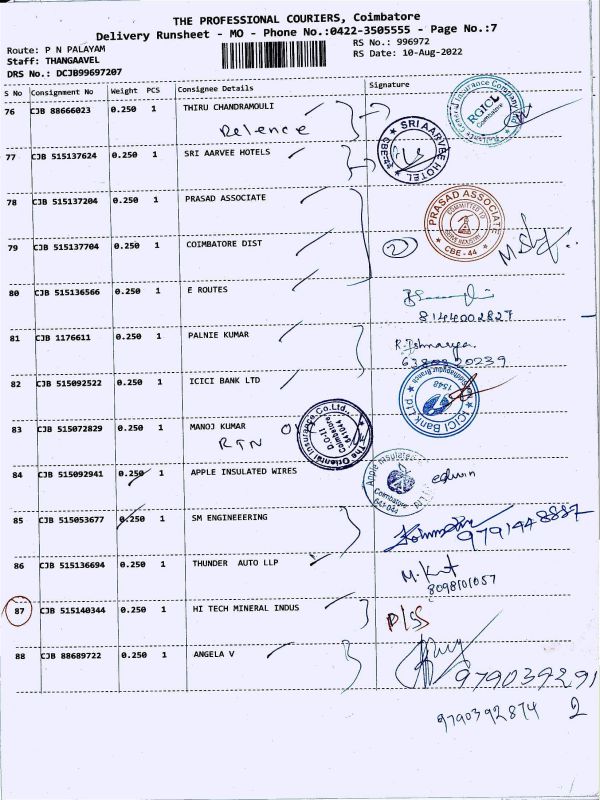 THE PROFESSIONAL COURIERS, Coimbatore
Delivery Runsheet - MO - Phone No.:0422-3505555 - Page No.:7
Route: P N PALAYAM
RS No.: 996972
Staff: THANGAAVEL
RS Date: 10-Aug-2022
DRS No.: DCJB99697207
S No Consignment No Weight PCS Consignee Details Signature
76 CJB 88666023 0.250 1 THIRU CHANDRAMOULI
Relence
RGICL
Coimbatore
77 CJB 515137624 0.250 1 SRI AARVEE HOTELS
SRI AARVEE HOTEL
78 CJB 515137204 0.250 1 PRASAD ASSOCIATE
PRASAD ASSOCIATE
COMMITTED TO
CBE - 44
79 CJB 515137704 0.250 1 COIMBATORE DIST
2
80 CJB 515136566 0.250 1 E ROUTES
8144002827
81 CJB 1176611 0.250 1 PALNIE KUMAR
82 CJB 515092522 0.250 1 ICICI BANK LTD
ICICI Bank Ltd
1548
83 CJB 515072829 0.250 1 MANOJ KUMAR
RTN
The Oriental Insurance Co. Ltd.
D.O-II
Coimbatore
641044
84 CJB 515092941 0.250 1 APPLE INSULATED WIRES
Apple Insulated
Coimbatore
edwin
85 CJB 515053677 0.250 1 SM ENGINEEERING
86 CJB 515136694 0.250 1 THUNDER AUTO LLP
8098101057
87 CJB 515140344 0.250 1 HI TECH MINERAL INDUS
88 CJB 88689722 0.250 1 ANGELA V
9790392914
9790392874 2